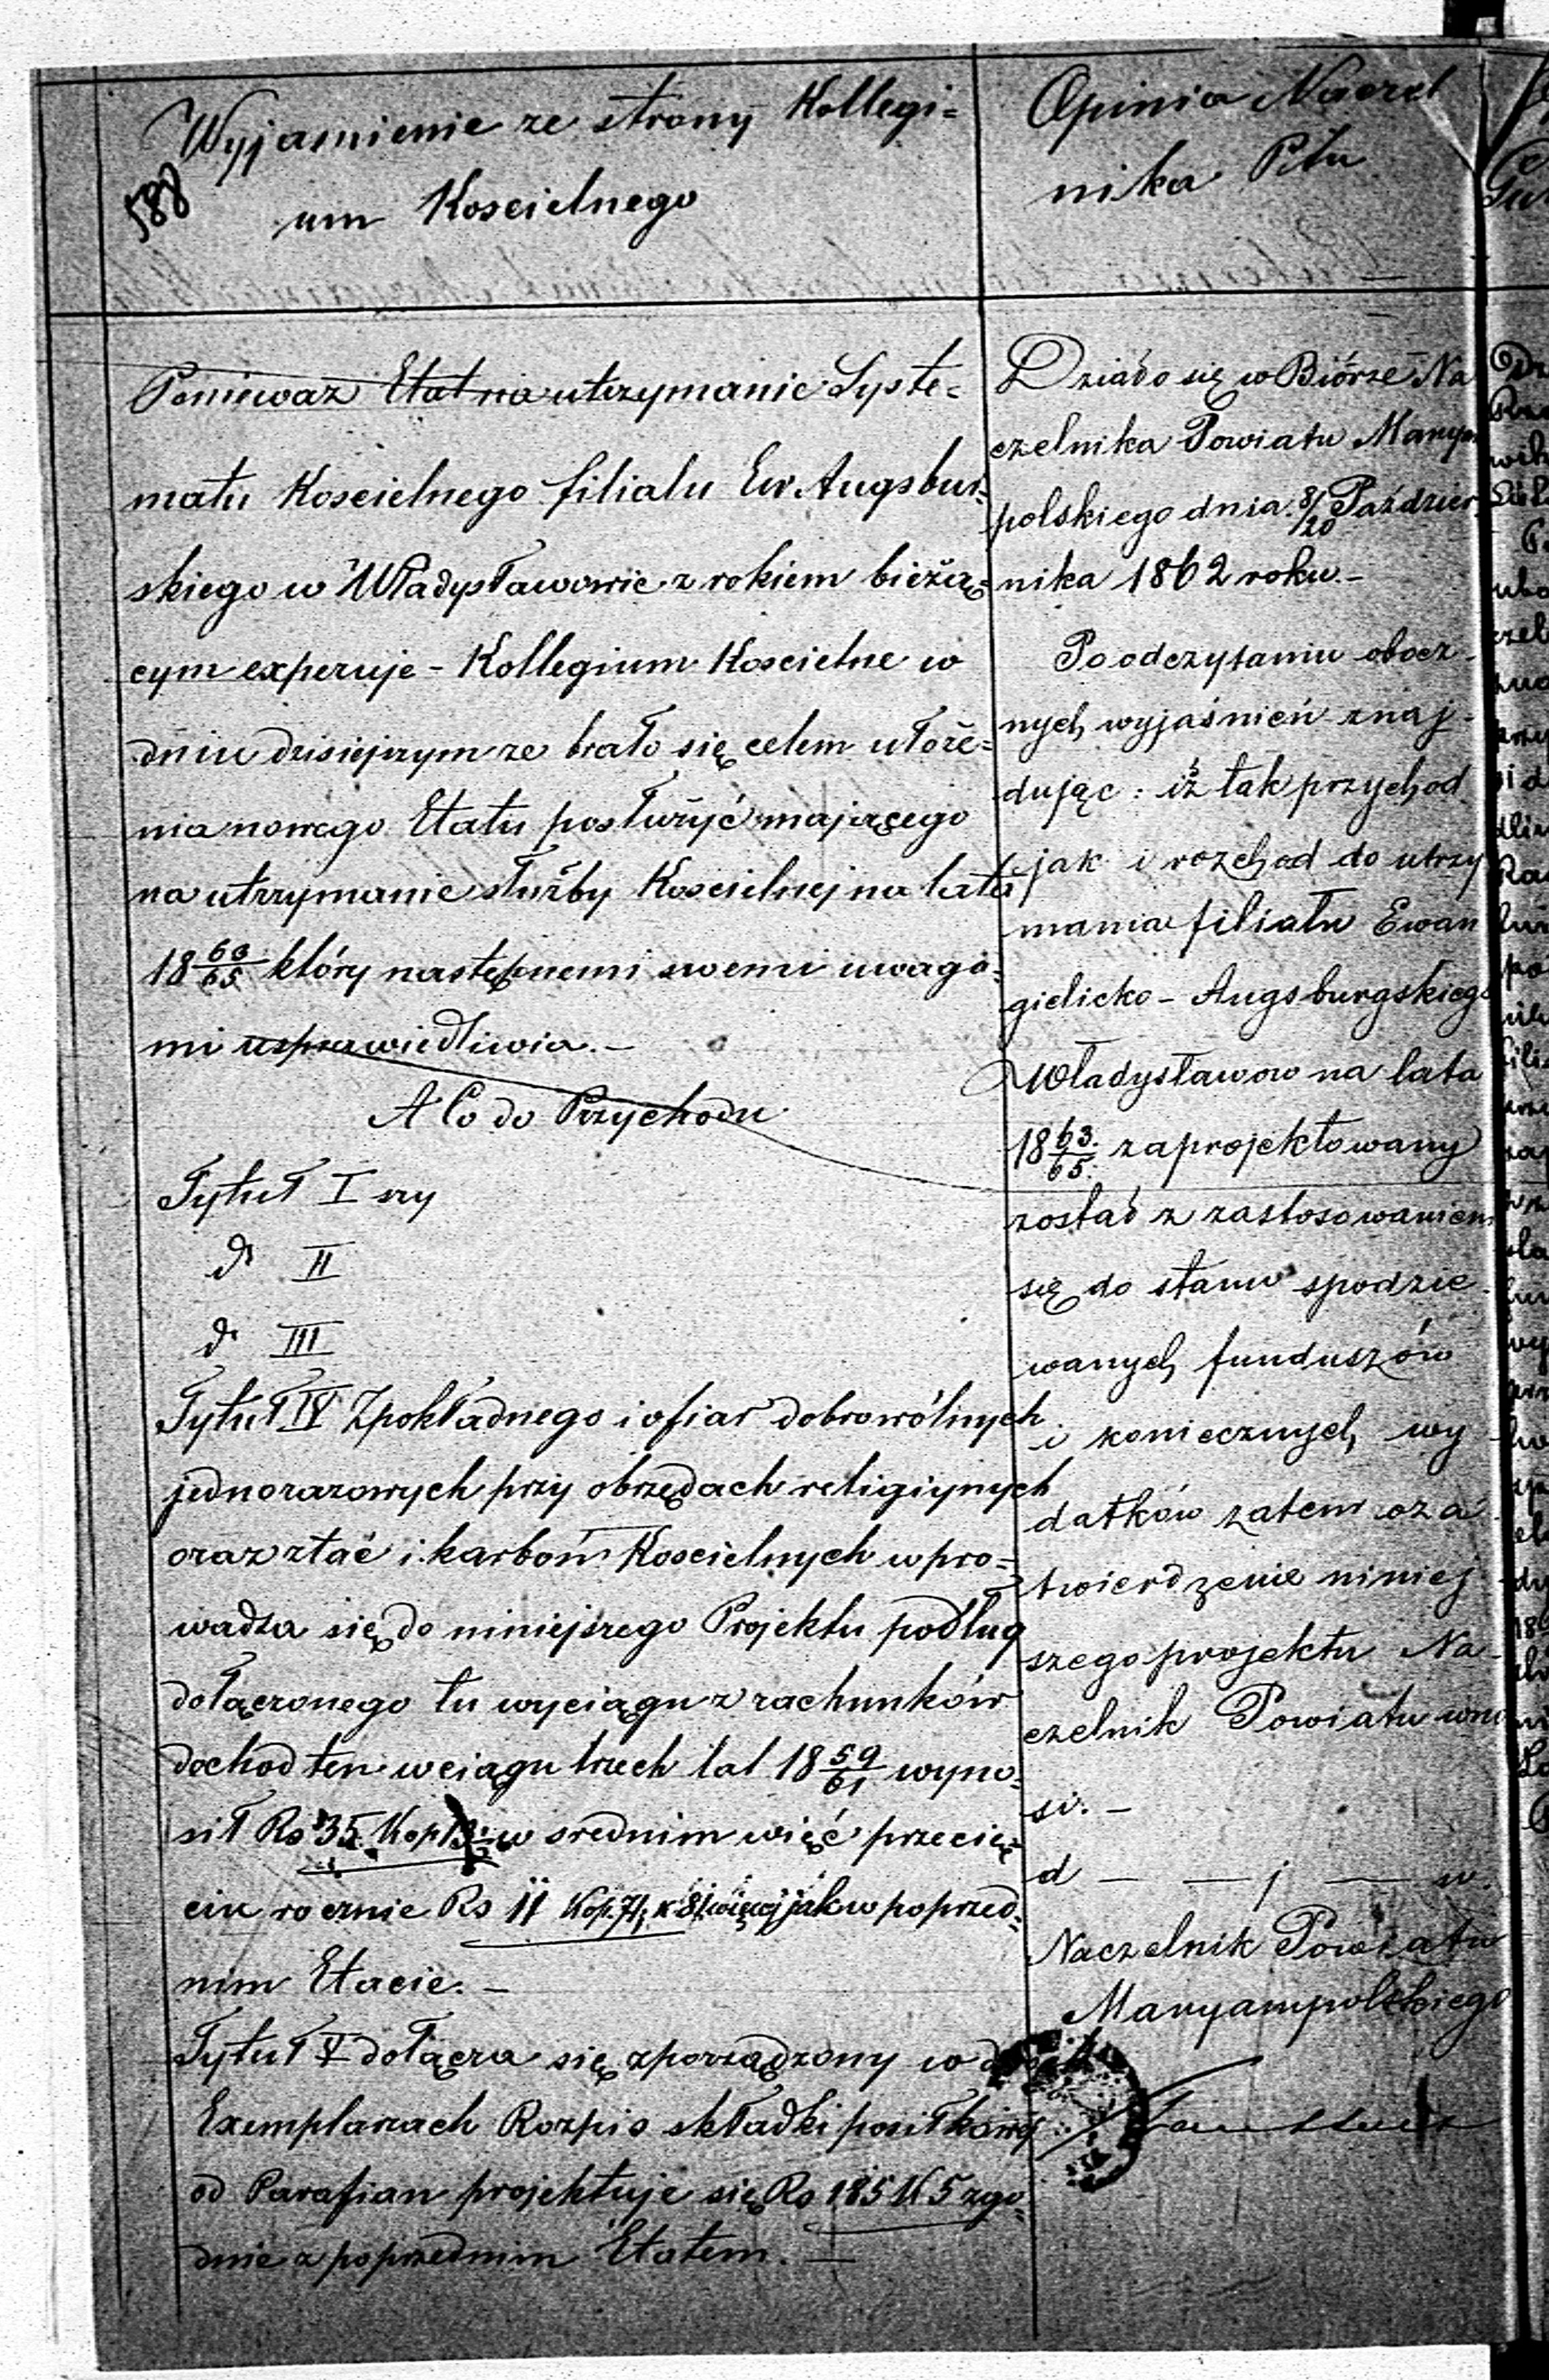 Wyjasnienie ze strony Kollegi=
um Koscielnego
588
Poniewaz Etat na utrzymanie Syste=
matu Koscielnego filialu Ew Augsbur=
skiego w Władysławowie z rokiem bieżą=
cym experuje - Kollegium Koscielne w
dniu dzisiejszym ze brało się celem ułoże=
nia nowego Etatu posłużyć mającego
na utrzymanie służby Koscielnej na lata
18 63/65 który następnemi swemi uwaga=
mi usprawiedliwia. -
A Co do Przychodu
Tytuł I szy
do II
do III
Tytuł IV Zpokładnego i ofiar dobrowólnych
jednorazowych przy obrzędach religiynych
oraz z tać i karbon Koscielnych wpro=
wadza się do niniejszego Projektu podług
dołączonego tu wyciągu z rachunków
dochod ten w ciągu trzech lat 18 59/61 wyno=
sił Rs 35. Kop 13 w srednim więć przecię=
ciu rocznie Rs 11 Kop. 71, k 81 więcej jak w poprzed=
nim Etacie. -
Tytuł V dołącza się zporządzony w
Exemplarzach Rozpis składki posiłkowej
od Parafian projektuje się Rs 185 K 5 zgo=
dnie z poprzednim Etatem. -
Opinia Naczel
nika Ptu
Działo się w Biórze Na
czelnika Powiatu Maryam
polskiego dnia 8/20 Paździer
nika 1862 roku. -
Po odczytaniu obocz
nych wyjaśnień znaj-
dując: iż tak przychod
jak i rozchod do utrzy
mania filiału Ewan
gielicko - Augsburgskiego
Władysławow na lata
18 63/65. zaprojektowany
został z zastosowaniem
się do stanu spodzie
wanych funduszów
i koniecznych wy
datków zatem o za
twierdzenie niniej
szego projektu Na
czelnik Powiatu wno
si. -
d — — j — w.
Naczelnik Powiatu
Maryampolskiego